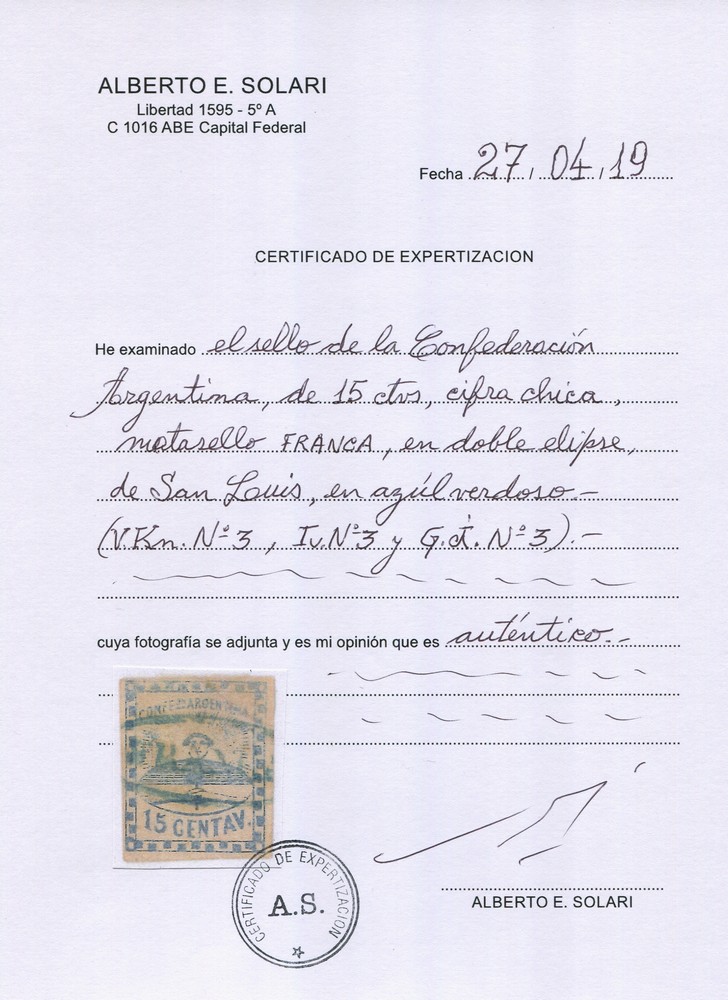 ALBERTO E. SOLARI
Libertad 1595 - 5º A
C 1016 ABE Capital Federal
Fecha 27 / 04 / 19
CERTIFICADO DE EXPERTIZACION
He examinado el sello de la Confederación
Argentina, de 15 ctvs, cifra chica,
matasello FRANCA, en doble elipse,
de San Luis, en azúl verdoso.-
(V.Kn. Nº 3, Iv. Nº 3 y G.J. Nº 3).-
cuya fotografía se adjunta y es mi opinión que es auténtico.-
CONFEON ARGENTINA
15 CENTAV.
CERTIFICADO DE EXPERTIZACION
A.S.
ALBERTO E. SOLARI